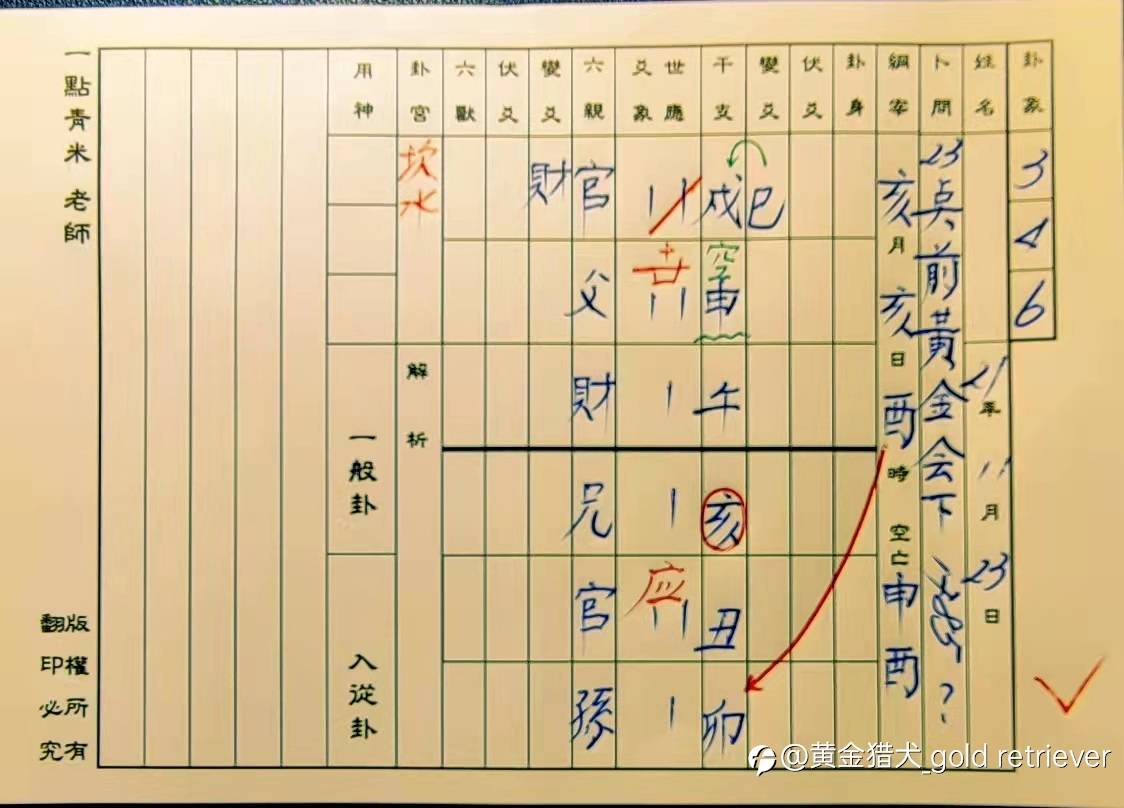 卦象
3
4
6
姓名
21年11月23日
卜問
23点前黄金会下
?
綱宰
亥月亥日酉時空亡申酉
卦身
伏爻
變爻
巳
干支
戌
空
申
午
亥
丑
卯
世應
爻象
世
应
六親
官
父
財
兄
官
孫
變爻
財
伏爻
六獸
卦宮
坎水
解析
用神
一般卦
入從卦
一點青米老師
版權所有
翻印必究
@黄金猎犬_gold retriever